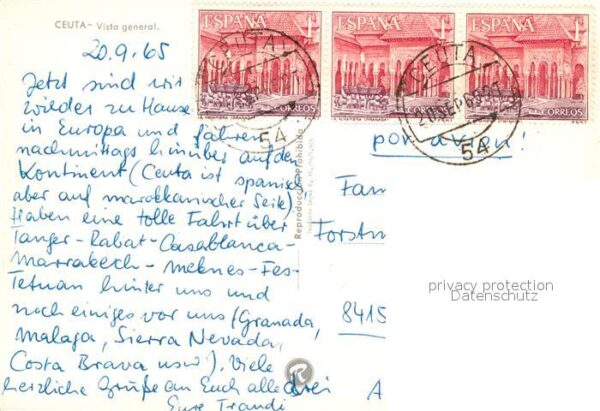 CEUTA - Vista general.
20.9.65
Jetzt sind wir
wieder zu Hause
in Europa und fahren
nachmittags hinüber auf den
Kontinent (Ceuta ist spanisch
aber auf marokkanischer Seite)
Haben eine tolle Fahrt über
Tanger - Rabat - Casablanca -
Marrakech - Meknes - Fes -
Tetuan hinter uns und
noch einiges vor uns (Granada,
Malaga, Sierra Nevada,
Costa Brava usw). Viele
herzliche Grüße an Euch alle drei
Eure Traudi
Reproducción Prohibida
ESPAÑA
ESPAÑA
ESPAÑA
CORREOS
CORREOS
CORREOS
CEUTA
54
CEUTA
20 SEP 65
54
por avion!
Fam
Forstn
8415
A
privacy protection
Datenschutz